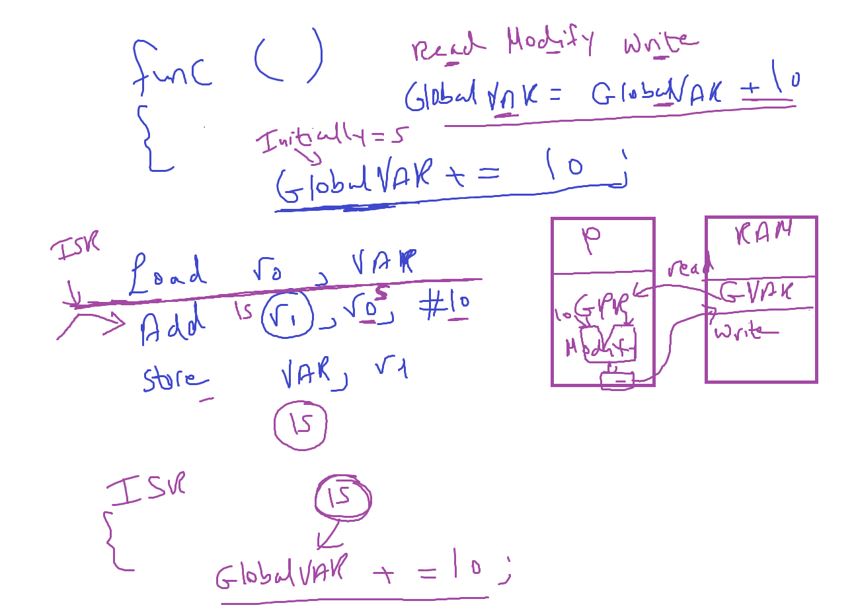 func ( )
{
Read Modify Write
GlobalVAR = GlobalVAR + 10
Initially = 5
GlobalVAR += 10 ;
ISR
Load r0 , VAR
Add 15 r1 , r0 5 , #10
store VAR, r1
15
P
RAM
read
GPR
GVAR
10
Modify
write
ISR
{
15
GlobalVAR += 10 ;